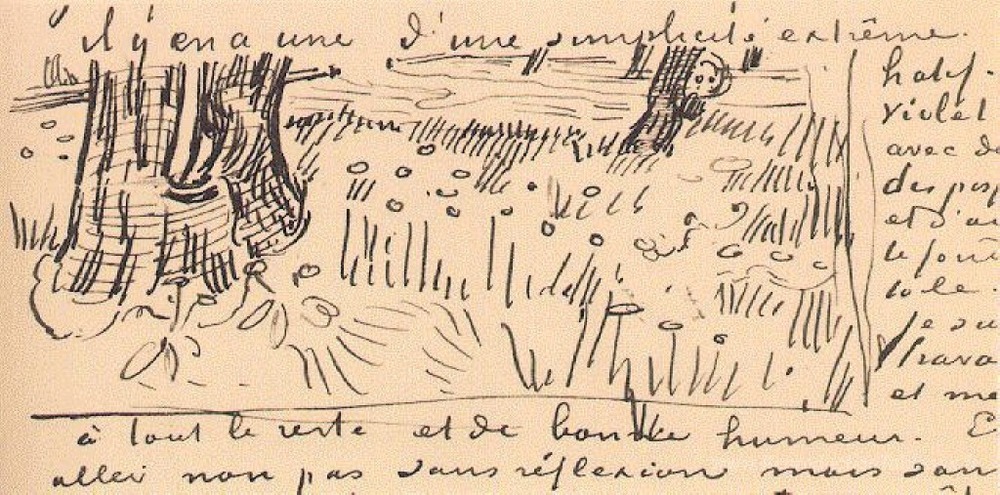 il y en a une d'une simplicité extrême.
violet
avec
et d'au
je su
trava
et me
à tout le reste et de bonne humeur. E
aller non pas sans réflexion mais san